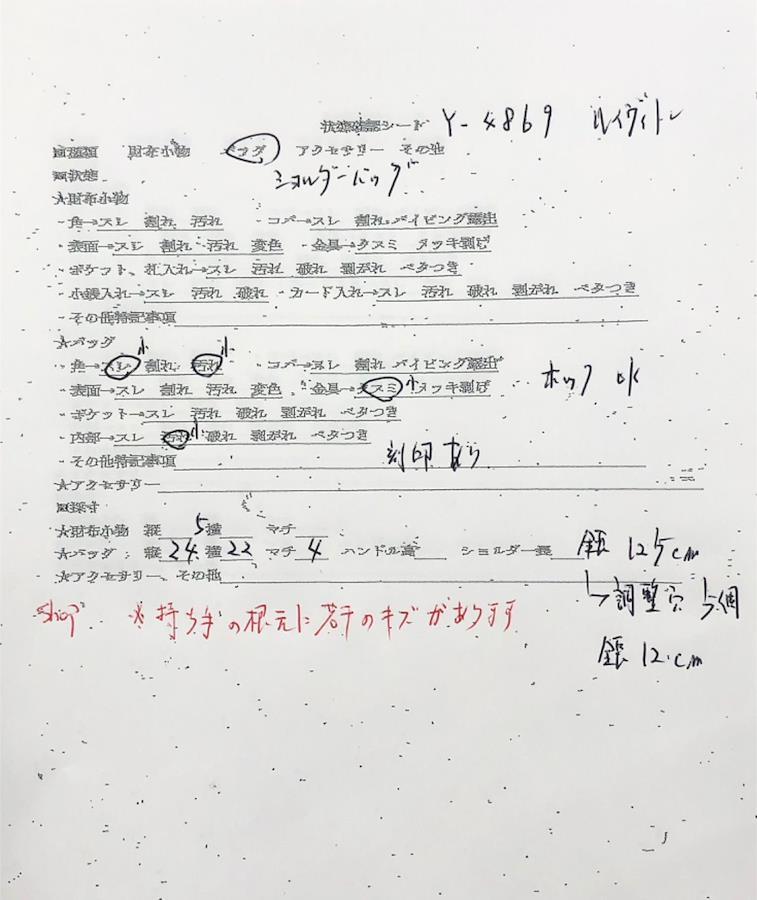 状態確認シート Y-4869 ルイヴィトン
□種類 財布小物 バッグ アクセサリー その他
□状態 ショルダーバッグ
★財布小物
・角→スレ 割れ 汚れ ・コバ→スレ 割れ パイピング露出
・表面→スレ 割れ 汚れ 変色 ・金具→クスミ メッキ剥げ
・ポケット、札入れ→スレ 汚れ 破れ 剥がれ ベタつき
・小銭入れ→スレ 汚れ 破れ ・カード入れ→スレ 汚れ 破れ 剥がれ ベタつき
・その他特記事項
★バッグ
・角→スレ小 割れ 汚れ小 ・コバ→スレ 割れ パイピング露出
・表面→スレ 割れ 汚れ 変色 ・金具→クスミ小 メッキ剥げ ホック OK
・ポケット→スレ 汚れ 破れ 剥がれ ベタつき
・内部→スレ 汚れ小 破れ 剥がれ ベタつき
・その他特記事項 刻印あり
★アクセサリー
□採寸
★財布小物 縦 5 横 マチ
★バッグ:縦 24 横 22 マチ 4 ハンドル高 ショルダー長 全長 125cm
★アクセサリー、その他
↳調整穴 5個
Shop ※持ち手の根元に若干のキズがあります
全長 12cm